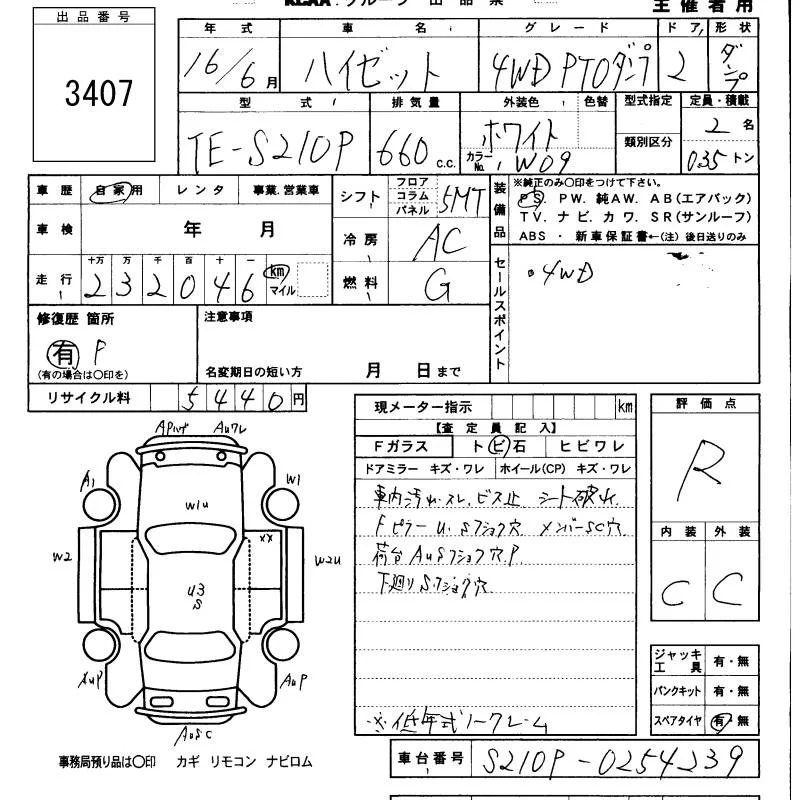 KCAA.グループ 出品票
主催者用
出品番号
3407
年式 車名 グレード ドア 形状
16/6月 ハイゼット 4WD PTOダンプ 2 ダンプ
型式 排気量 外装色 色替 型式指定 定員・積載
TE-S210P 660 c.c. ホワイト 類別区分 2名
カラーNo. W09 035トン
車歴 自家用 レンタ 事業.営業車
シフト フロア コラム パネル 5MT
装備品 ※純正のみ〇印をつけて下さい。
PS. PW. 純AW. AB(エアバック)
TV. ナビ. カワ. SR(サンルーフ)
ABS ・ 新車保証書←(注) 後日送りのみ
車検 年 月
冷房 AC
走行 十万 万 千 百 十 一
232046 km マイル
燃料 G
セールスポイント
・4WD
修復歴 箇所
有 P
(有の場合は〇印を)
注意事項
名変期日の短い方 月 日まで
リサイクル料 5440円
現メーター指示 km
【査定員記入】
Fガラス トビ石 ヒビワレ
ドアミラー キズ・ワレ ホイール(CP) キズ・ワレ
車内汚れ.スレ.ビス止 シート破れ
Fピラーu. Sフショク穴 メンバーSC穴
荷台AuSフショク穴.P
下廻りSフショク穴
※低年式ノークレーム
評価点
R
内装 外装
C C
ジャッキ工具 有・無
パンクキット 有・無
スペアタイヤ 有・無
APハゲ Auワレ
A1 W1
W1u
XX
W2 W2u
u3
S
XuP AuP
AuSC
事務局預り品は〇印 カギ リモコン ナビロム
車台番号 S210P-0254239